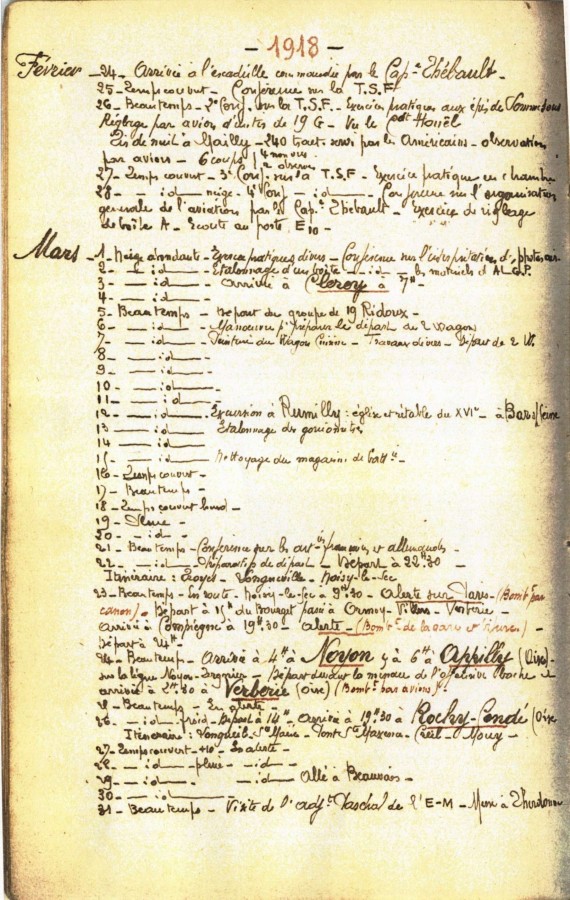 - 1918 -
Février - 24 - Arrivée à l'escadrille commandée par le Cap.ne Thébault -
25 - Temps couvert - Conférence sur la T.S.F.
26 - Beau temps - 2e Conf. sur la T.S.F. - Exercices pratiques aux épis de Sommesous
Réglage par avion d'autres de 19 G - Vu le Cdt Houël
Tirs de nuit à Mailly - 240 tract servi par les Américains - observation
par avions - 6 coups 4 non vus 2 observés
27 - Temps couvert - 3e Conf. sur la T.S.F. - Exercice pratique en chambre
28 - - id - neige - 4e Conf - id - Conférence sur l'organisation
générale de l'aviation par le Cap.ne Thébault - Exercice de réglage
de boîte A - Ecoute au poste E10 -
Mars - 1 - Neige abondante - Exercices pratiques divers - Conférence sur l'interprétation de photos
2 - - id - Etalonnage d'un boîte - id - les matériels d'A.L.G.P.
3 - - id - arrivée à Cleroy à 7h -
4 - - id -
5 - Beau temps - Départ du groupe de 19 Ridoux -
6 - - id - Manoeuvre pr préparer le départ du 2 wagon
7 - - id - Peinture du Wagon Cuisine - Travaux divers - Départ de 2 W.
8 - - id -
9 - - id -
10 - - id -
11 - - id -
12 - - id - Excursion à Rumilly : église et rétable du XVIe - à Bar s/ Seine
13 - - id - Etalonnage des goniomètres
14 - - id -
15 - - id - Nettoyage du magasin de batt.ie -
16 - Temps couvert -
17 - Beau temps -
18 - Temps couvert lourd -
19 - Pluie -
20 - - id -
21 - Beau temps - Conférence sur les art.ies françaises et allemandes -
22 - - id - Préparatifs de départ - Départ à 22h30 -
Itinéraire : Troyes - Longueville - Noisy-le-Sec
23 - Beau temps - En route - Noisy-le-Sec à 9h30 - Alerte sur Paris - (Bombt par
canon) - Départ à 15h du Bourget passé à Ormoy - Villers -
arrivée à Compiègne à 19h.30 - alerte - (Bombt de la gare et )
Départ à 24h -
24 - Beau temp - arrivée à 4h à Noyon y à 6h à Appilly (Oise)
sur la ligne Noyon - Tergnier - Départ devant la menace de l'offensive boche et
arrivée à 2h.30 à Verberie (Oise) (Bombt par avions)
25 - Beau temps - En alerte -
26 - - id - froid - Départ à 14h - arrivée à 19h30 à Rochy-Condé (Oise
Itinéraire : Longueil-Ste Marie - Pont Ste Maxence - Creil - Mouy -
27 - Temps couvert - - En alerte -
28 - - id - pluie - - id -
29 - - id - - id - Allé à Beauvais -
30 - - id -
31 - Beau temps - Visite de l'Adjt Paschal de l'E-M - Messe à Therdonne